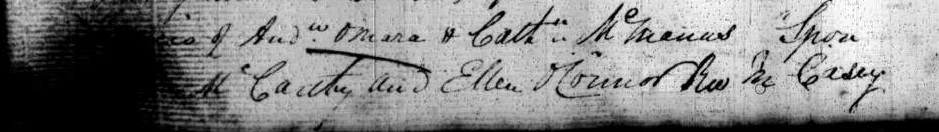 of Andw. Omara & Cathn. McManus Spon
McCarthy and Ellen OConnor Rev Mr Casey